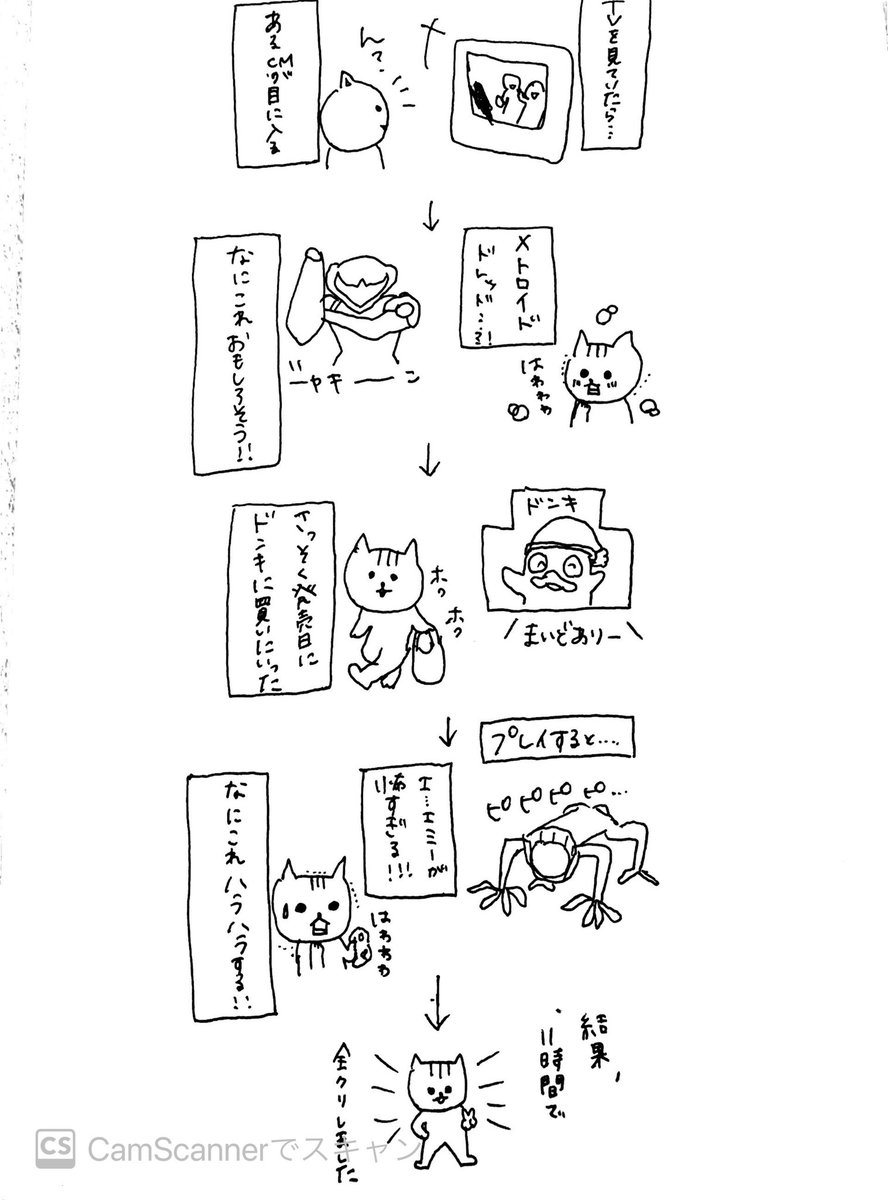 TVを見ていたら…
ん?
ある
CMが
目に入る
メトロイド
ドレッド…る!
はわわわ
ジャキーーン
なにこれおもしろそう!!
ドンキ
まいどありー
ホク
ホク
さっそく発売日に
ドンキに買いにいった
プレイすると....
ピロピロピロピロ…
エ…エミーが
怖すぎる!!!
はわわわ
なにこれハラハラする!!
結果、
11時間で
全クリしました
CS CamScannerでスキャン